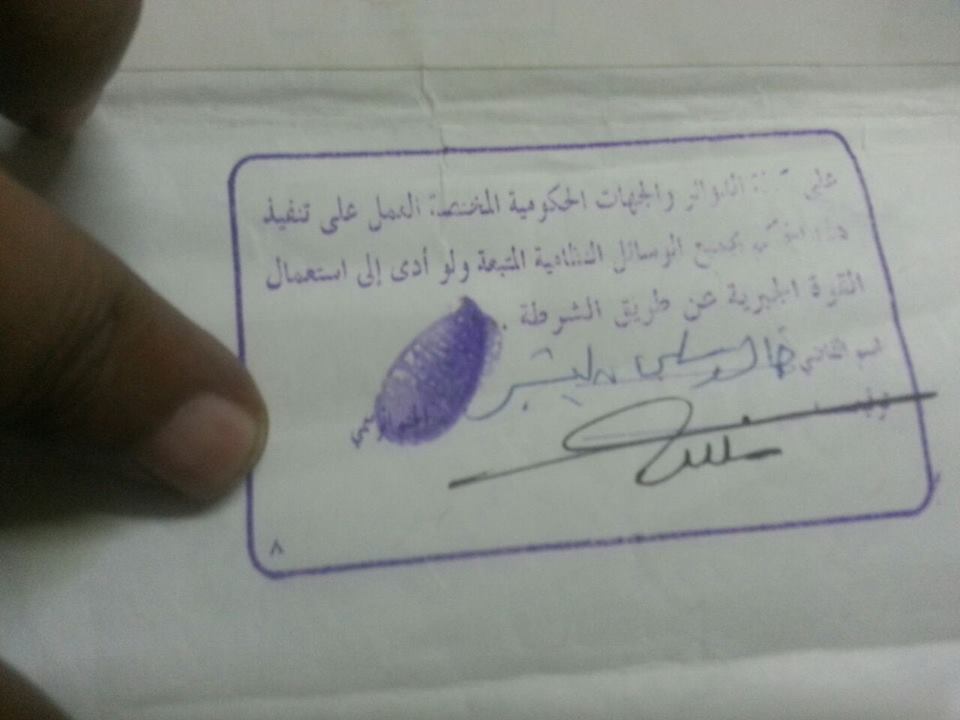 على كافة الدوائر والجهات الحكومية المختصة العمل على تنفيذ
هذا الحكم بجميع الوسائل النظامية المتبعة ولو أدى إلى استعمال
القوة الجبرية عن طريق الشرطة .
اسم القاضي
توقيعه الختم الرسمي
٨